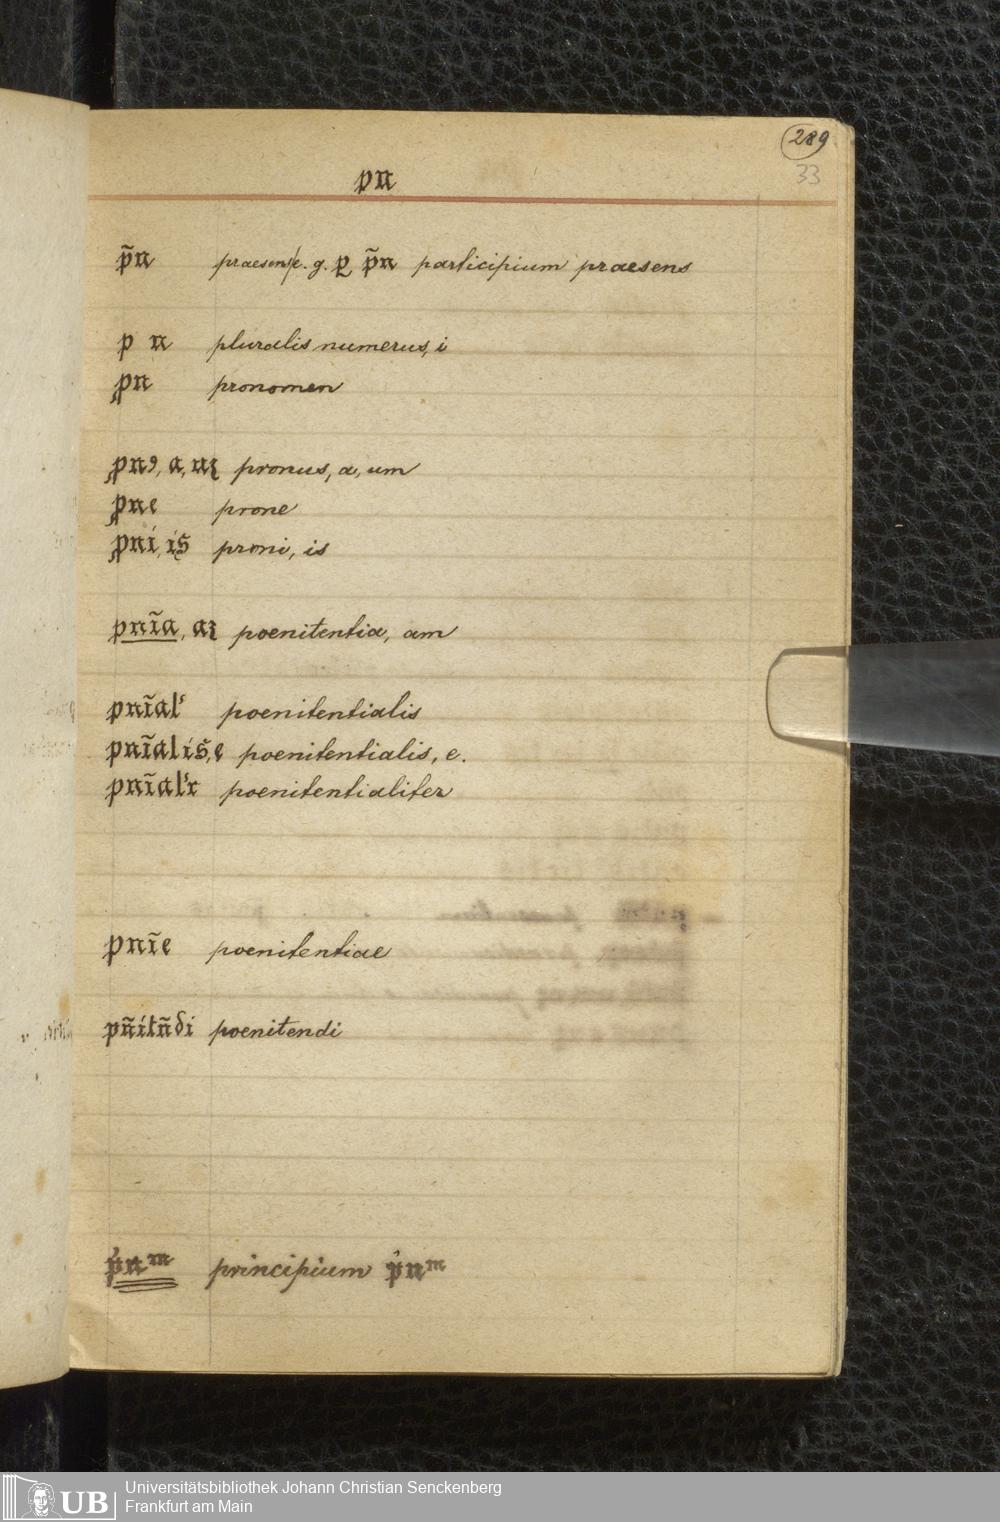 289
33
pn
p̃n praesens/e. g. p p̃n participium praesens
p n pluralis numerus, i
ꝓn pronomen
ꝓnꝰ, a, uʒ pronus, a, um
ꝓne prone
ꝓni, is̃ proni, is
pnĩa, aʒ poenitentia, am
pnĩalˢ poenitentialis
pnĩalis̃, e poenitentialis, e.
pnĩalˢr poenitentialiter
pnĩe poenitentiae
pñitñdi poenitendi
p̓nᵐ principium p̓nᵐ
UB Universitätsbibliothek Johann Christian Senckenberg
Frankfurt am Main